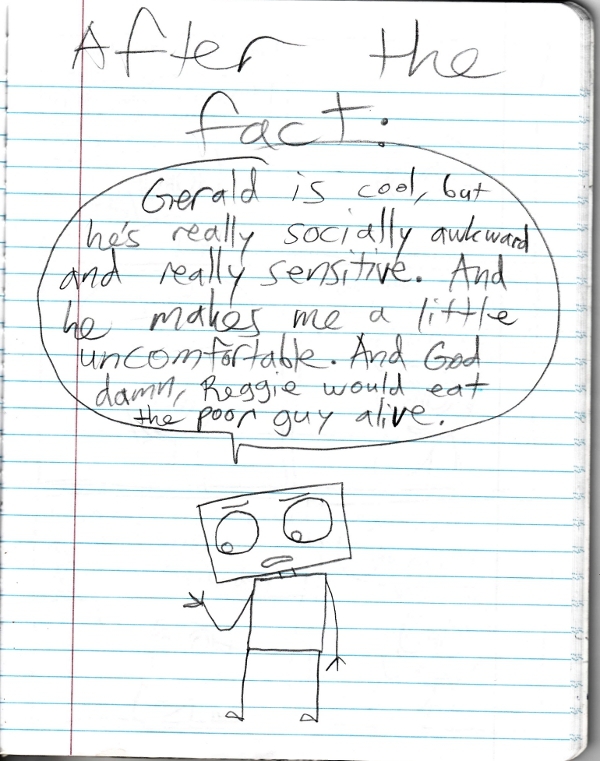 After the
fact:
Gerald is cool, but
he's really socially awkward
and really sensitive. And
he makes me a little
uncomfortable. And God
damn, Reggie would eat
the poor guy alive.